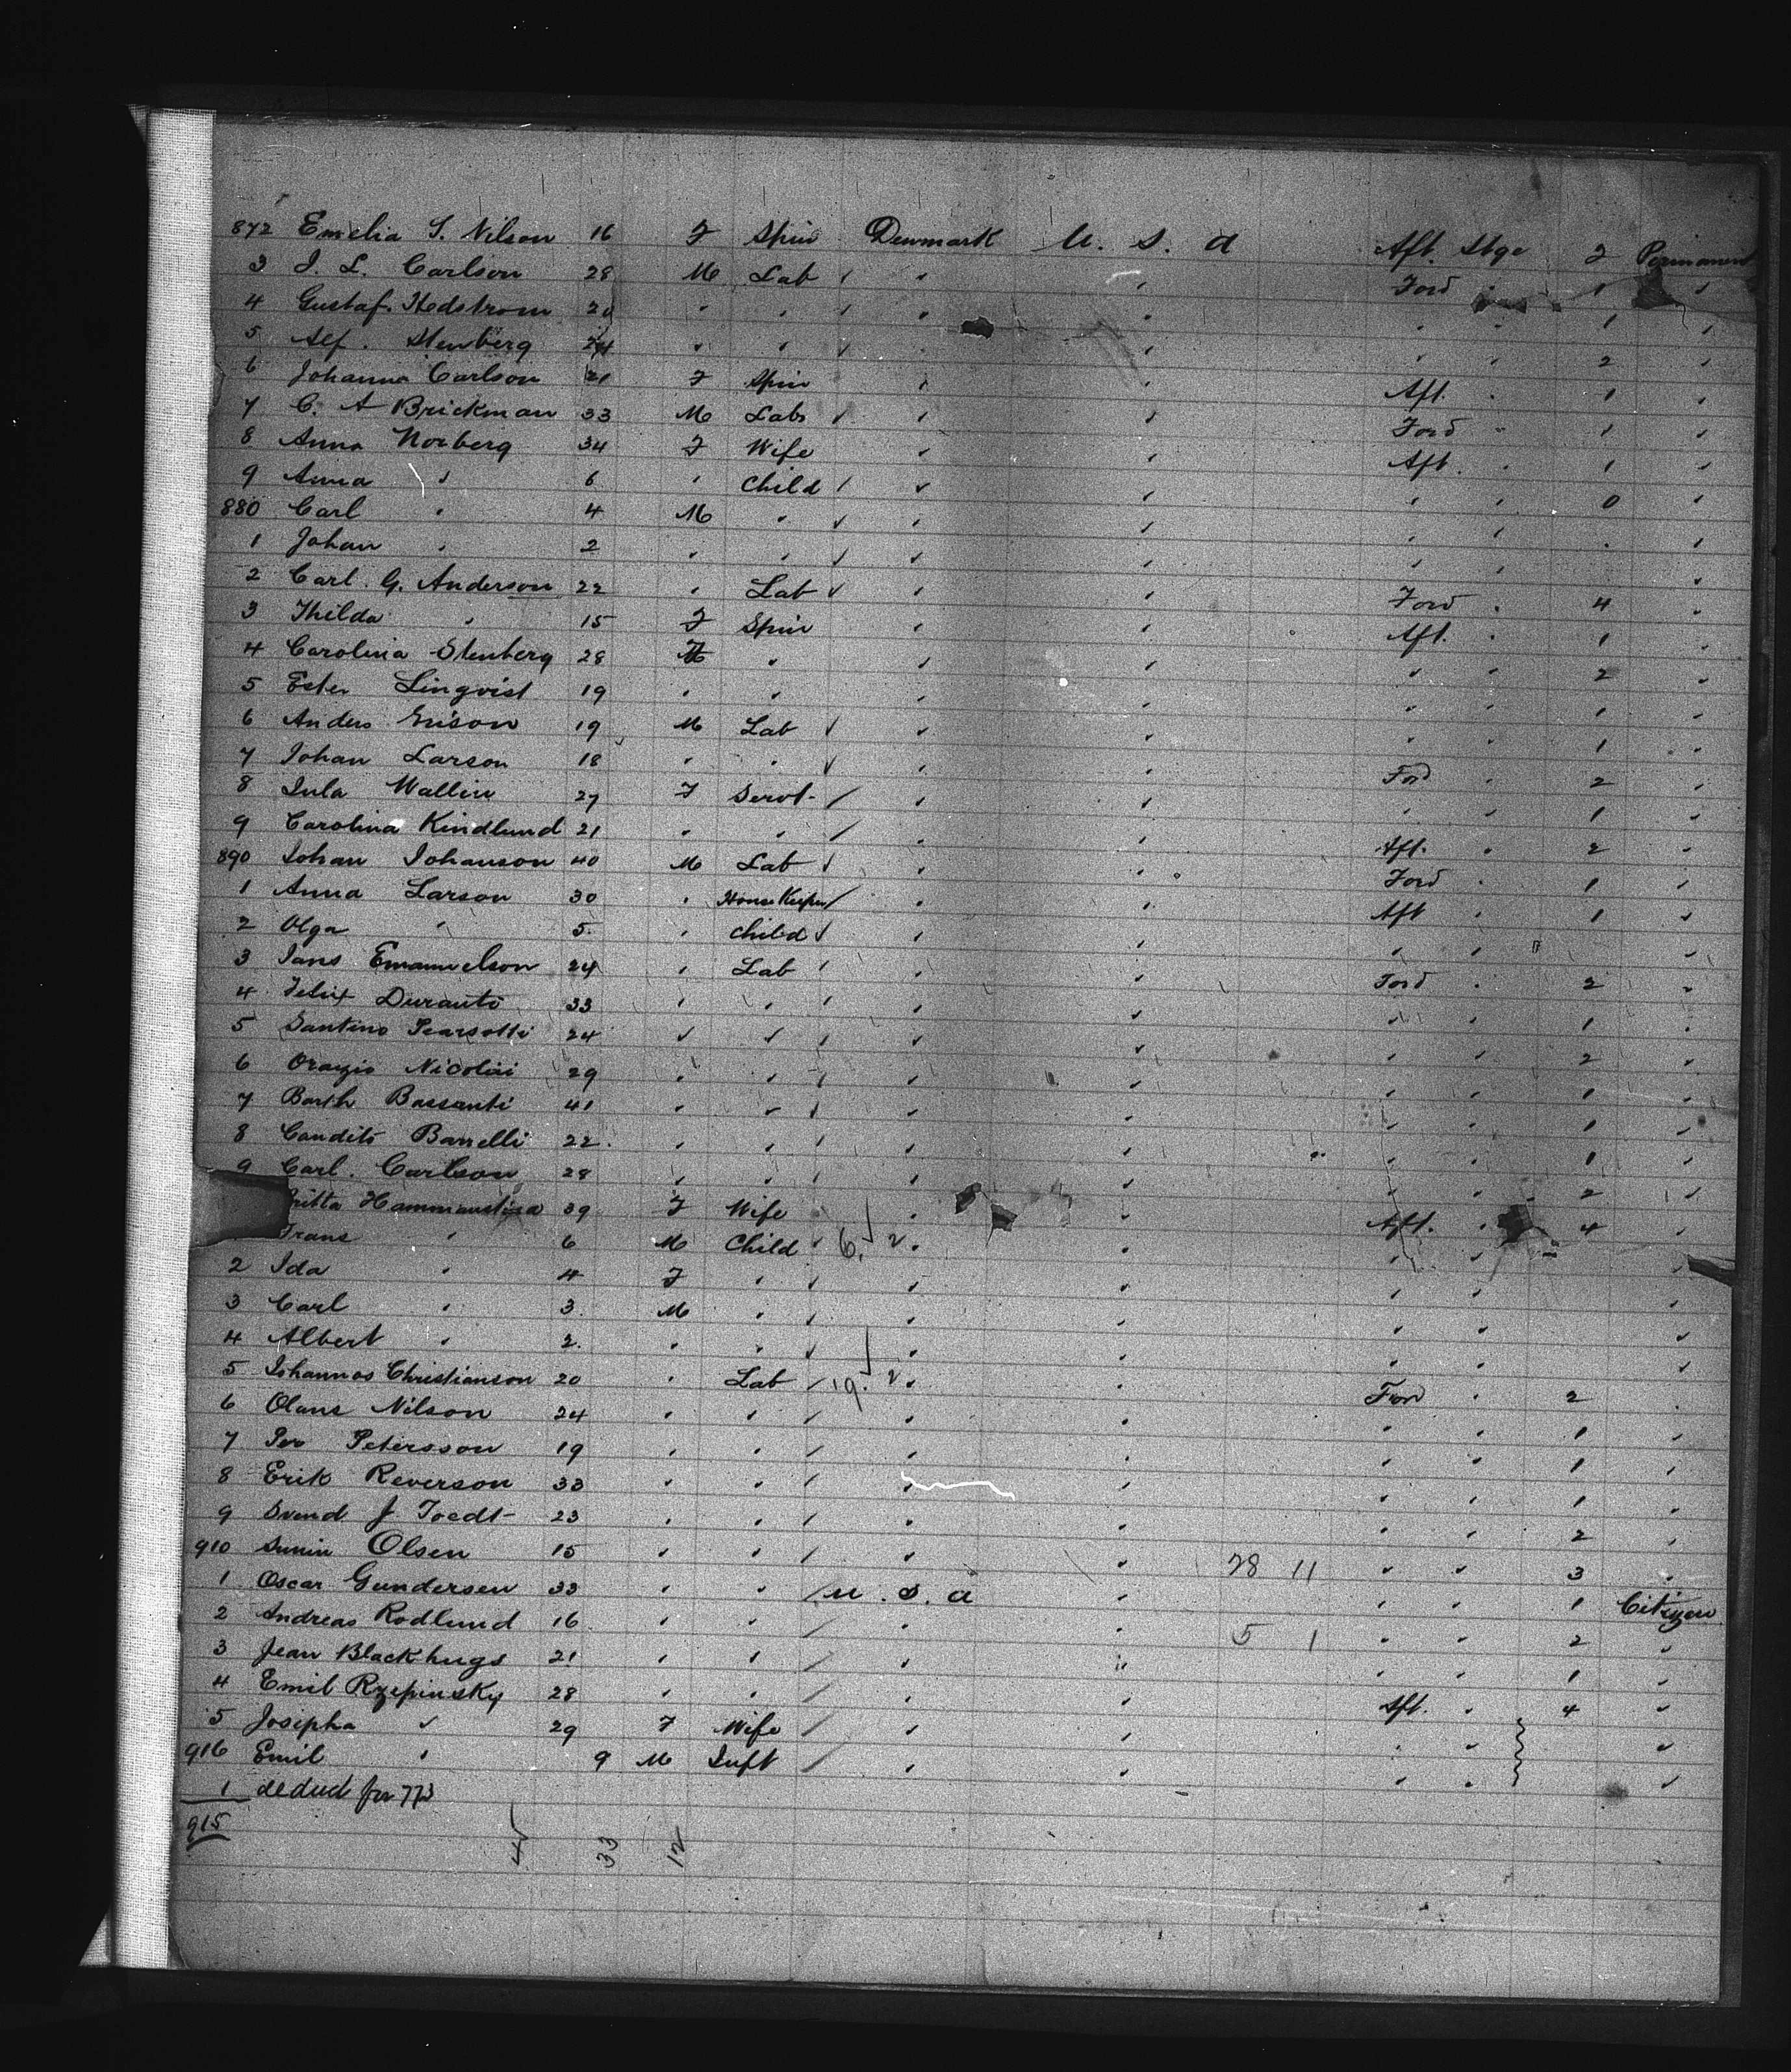 872 Emelia S. Nilson 16 F Spin Denmark U. S. A Aft. Stge 2 Permanent
3 J. L. Carlson 28 M Lab " " Ford " 1 "
4 Gustaf. Hedstrom 20 " " " " " " 1 "
5 Alf. Stenberg 24 " " " " " " 2 "
6 Johanna Carlson 21 F Spin " " Aft. " 1 "
7 C. A Brickman 33 M Labr " " Ford " 1 "
8 Anna Norberg 34 F Wife " " Aft. " 1 "
9 Anna " 6 " Child " " " " 0 "
880 Carl " 4 M " " " " " " "
1 Johan " 2 " " " " " " "
2 Carl. G. Anderson 22 " Lab " " Ford " 4 "
3 Thilda " 15 F Spin " " Aft. " 1 "
4 Carolina Stenberg 28 F " " " " " 2 "
5 Ester Linqvist 19 " " " " " " 1 "
6 Anders Erison 19 M Lab " " " " 1 "
7 Johan Larson 18 " " " " Ford " 2 "
8 Jula Wallin 27 F Servt. " " " " 1 "
9 Carolina Kindlund 21 " " " " Aft. " 2 "
890 Johan Johanson 40 M Lab " " Ford " 1 "
1 Anna Larson 30 " House Keeper " " Aft " 1 "
2 Olga " 5. " Child " " " " "
3 Jans Emanuelson 24 " Lab " " Ford " 2 "
4 Felix Duranto 33 " " " " " " 1 "
5 Santino 24 " " " " " " 2 "
6 Orazio Nicolai 29 " " " " " " 1 "
7 Barth Bassanti 41 " " " " " " 1 "
8 Candito Barrelli 22. " " " " " " 1 "
9 Carl. Carlson 28 " " " " " " 2 "
ritta 39 F Wife " " Aft. " 4 "
Frans " 6 M Child 6. 2 " " " " "
2 Ida " 4 F " " " " " "
3 Carl " 3. M " " " " " "
4 Albert " 2. " " " " " " "
5 Johannes Christianson 20 " Lab 19. 2 " " Ford " 2 "
6 Olaus Nilson 24 " " " " " " 1 "
7 Per Petersson 19 " " " " " " 1 "
8 Erik Reverson 33 " " " " " " 1 "
9 Svend J Toedt 23 " " " " " " 2 "
910 Olsen 15 " " " " 78 11 " " 3 "
1 Oscar Gundersen 33 " " U. S. A " " " 1 Citizen
2 Andreas Rodlund 16 " " " " 5 1 " " 2 "
3 Jean Blackhugs 21 " " " " " " 1 "
4 Emil Rzepinsky 28 " " " " Aft. " 4 "
5 Josepha " 29 F Wife " " " " "
916 Emil " 9 M Inft " " " " "
1 deduct for 773
915
45 33 12